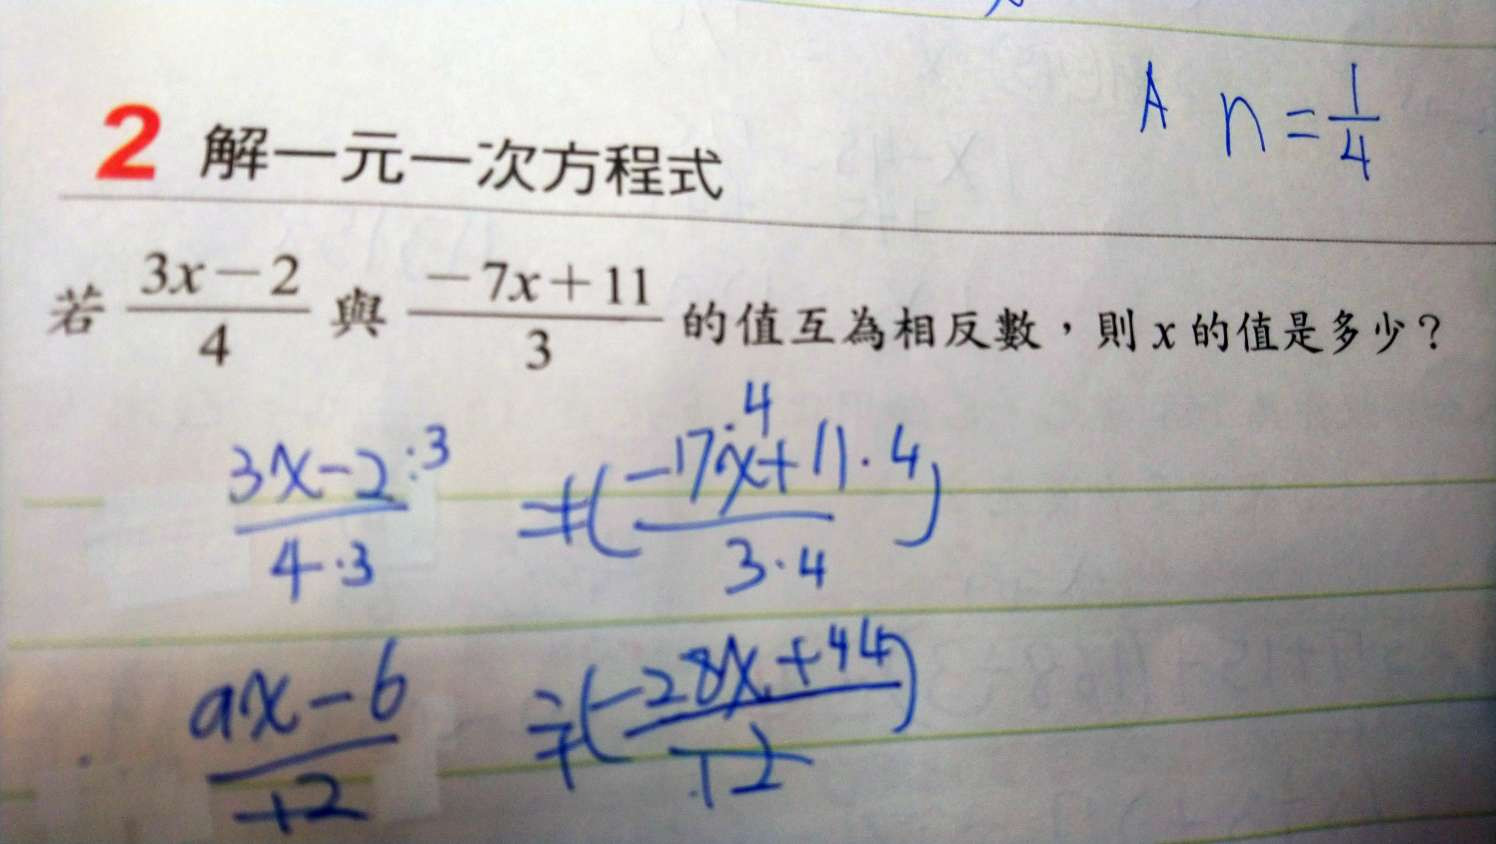 A n = 1/4
2 解一元一次方程式
若 (3x-2)/4 與 (-7x+11)/3 的值互為相反數,則 x 的值是多少?
(3x-2·3)/(4·3) =-((-7x·4+11·4)/(3·4))
(9x-6)/12 =-((-28x+44)/12)